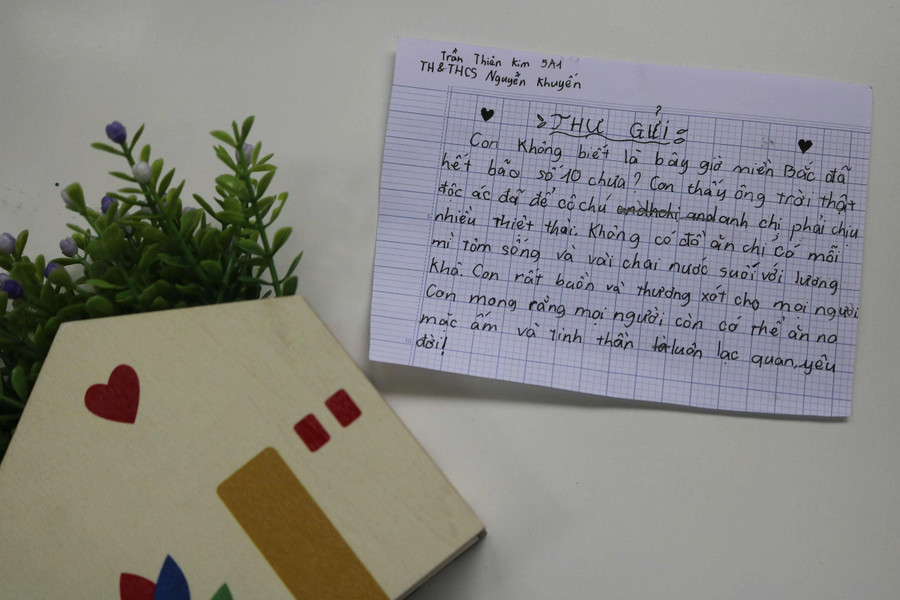 Trần Thiên Kim 5A1
TH & THCS Nguyễn Khuyến
THƯ GỬI
Con không biết là bây giờ miền Bắc đã
hết bão số 10 chưa? Con thấy ông trời thật
độc ác đã để cô chú anh chị phải chịu
nhiều thiệt thài. Không có đồ ăn chỉ có mỗi
mì tôm sống và vài chai nước suối với lương
khô. Con rất buồn và thương xót cho mọi người
Con mong rằng mọi người còn có thể ăn no
mặc ấm và tinh thần luôn lạc quan, yêu
đời!